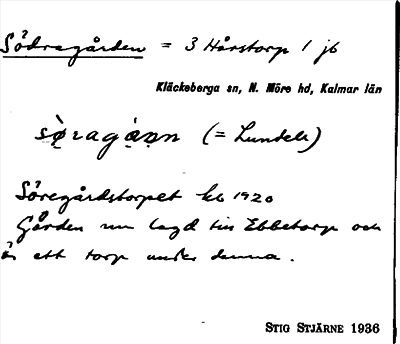 Södragården = 3 Hårstorp 1 jb
Kläckeberga sn, N. Möre hd, Kalmar län
sø̀ragạ̊ṇ (= Lundell)
Söregårdstorpet kb 1920
Gården nu lagd till Ebbetorp och
är ett torp under denna.
STIG STJÄRNE 1936